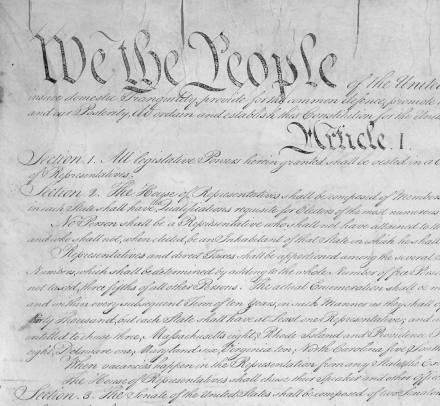 We the People of the United
insure domestic Tranquility, provide for the common defence, promote
and our Posterity, do ordain and establish this Constitution for the Unit
Article. I.
Section. 1. All legislative Powers herein granted shall be vested in a C
of Representatives.
Section. 2. The House of Representatives shall be composed of Members
in each State shall have Qualifications requisite for Electors of the most numerous
No Person shall be a Representative who shall not have attained to th
and who shall not, when elected, be an Inhabitant of that State in which he shall
Representatives and direct Taxes shall be apportioned among the several
Numbers, which shall be determined by adding to the whole Number of free Pers
not taxed, three fifths of all other Persons. The actual Enumeration shall be m
and within every subsequent Term of ten Years, in such Manner as they shall
thirty Thousand, but each State shall have at Least one Representative; and
entitled to chuse three, Massachusetts eight, Rhode Island and Providence
eight, Delaware one, Maryland six, Virginia ten, North Carolina five,
When vacancies happen in the Representation from any State, the Ex
The House of Representatives shall chuse their Speaker and other Offic
Section. 3. The Senate of the United States shall be composed of two Senat